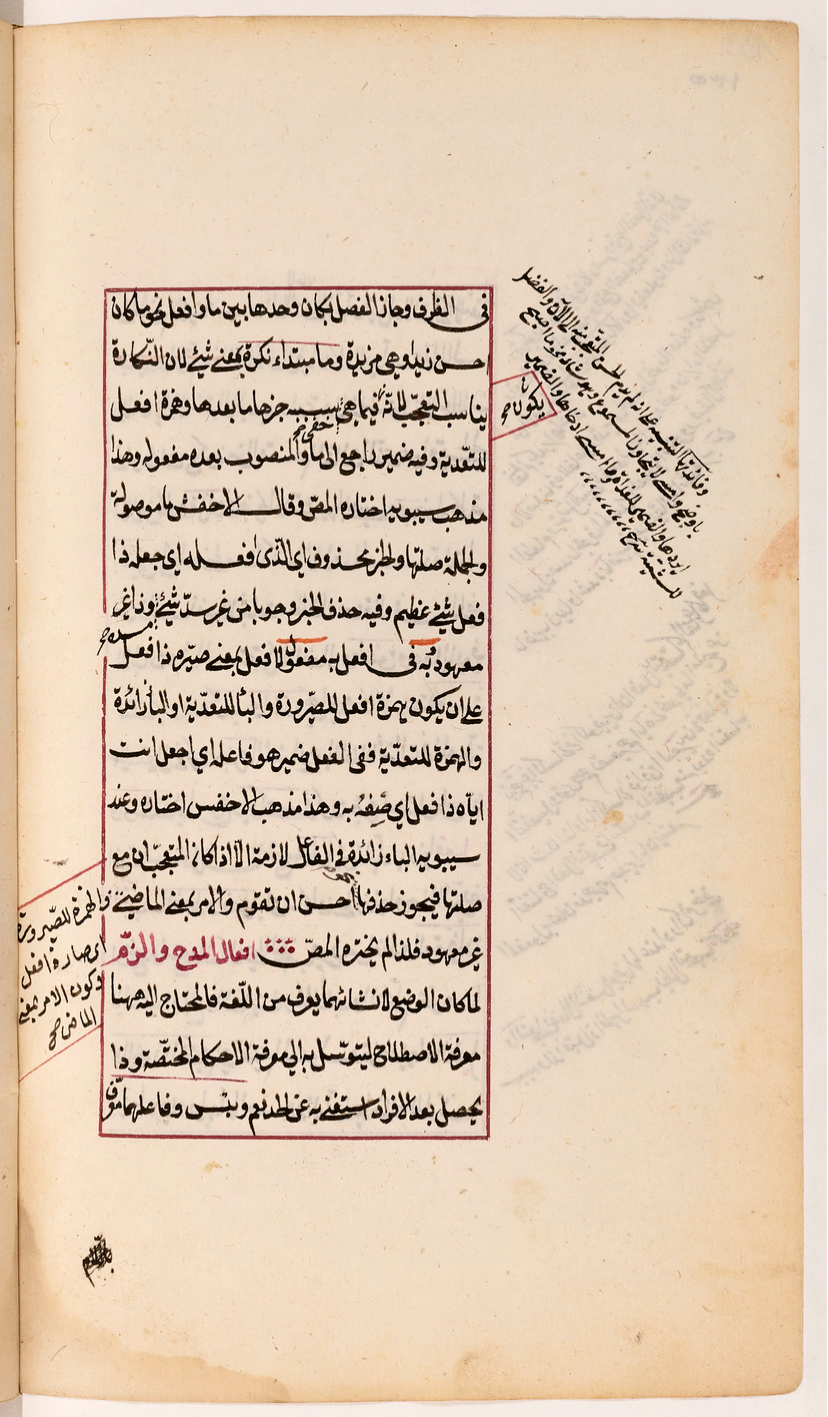 فى الظرف وجاز الفصل بكان وحدها بين ما وافعل نحو ما كان
احسن زيدا وهي مزيدة وما مبتداء نكرة بمعنى شيئ لان النكارة
يناسب التعجب لانه فيما هي سببه جزها ما بعدها وهمزة افعل
للتعدية وفيه ضمير راجع الى ما والمنصوب بعده مفعوله وهذا
مذهب سيبويه اختاره المص وقال الاخفش ما موصولة
والجملة صلتها والخبر محذوف اي الذى افعله اي جعله ذا
فعل شيئ عظيم وفيه حذف الخبر وجوبا من غير سد شيئ وذا غير
معهود به فى افعل به مفعول لا افعل بمعنى صيره ذا فعل
على ان يكون همزة افعل للصيرورة والبا للتعدية او البا زائدة
والهمزة للتعدية ففى الفعل ضمير هو فاعله اي اجعل انت
اياه ذا فعل اي صفه به وهذا مذهب الاخفس اختاره وعند
سيبويه الباء زائدة فى الفاعل لازمة الا اذا كان المتعجب ان مع
صلتها فيجوز حذفها احسن ان تقوم والامر بمعنى الماضي
غير معهود فلذا لم يختره المص افعال المدح والذم
لما كان الوضع لانشائهما يعرف من اللغة فالمحتاج اليه ههنا
معرفة الاصطلاح ليتوسل به الى معرفة الاحكام المختصة وذا
يحصل بعد الافراد استغنى به عن الحد نعم وبئس وفاعلهما معرف
يكون صح
والهمزة للصيرورة
اى صار ذا فعل
وكون الامر بمعنى
الماضى صح